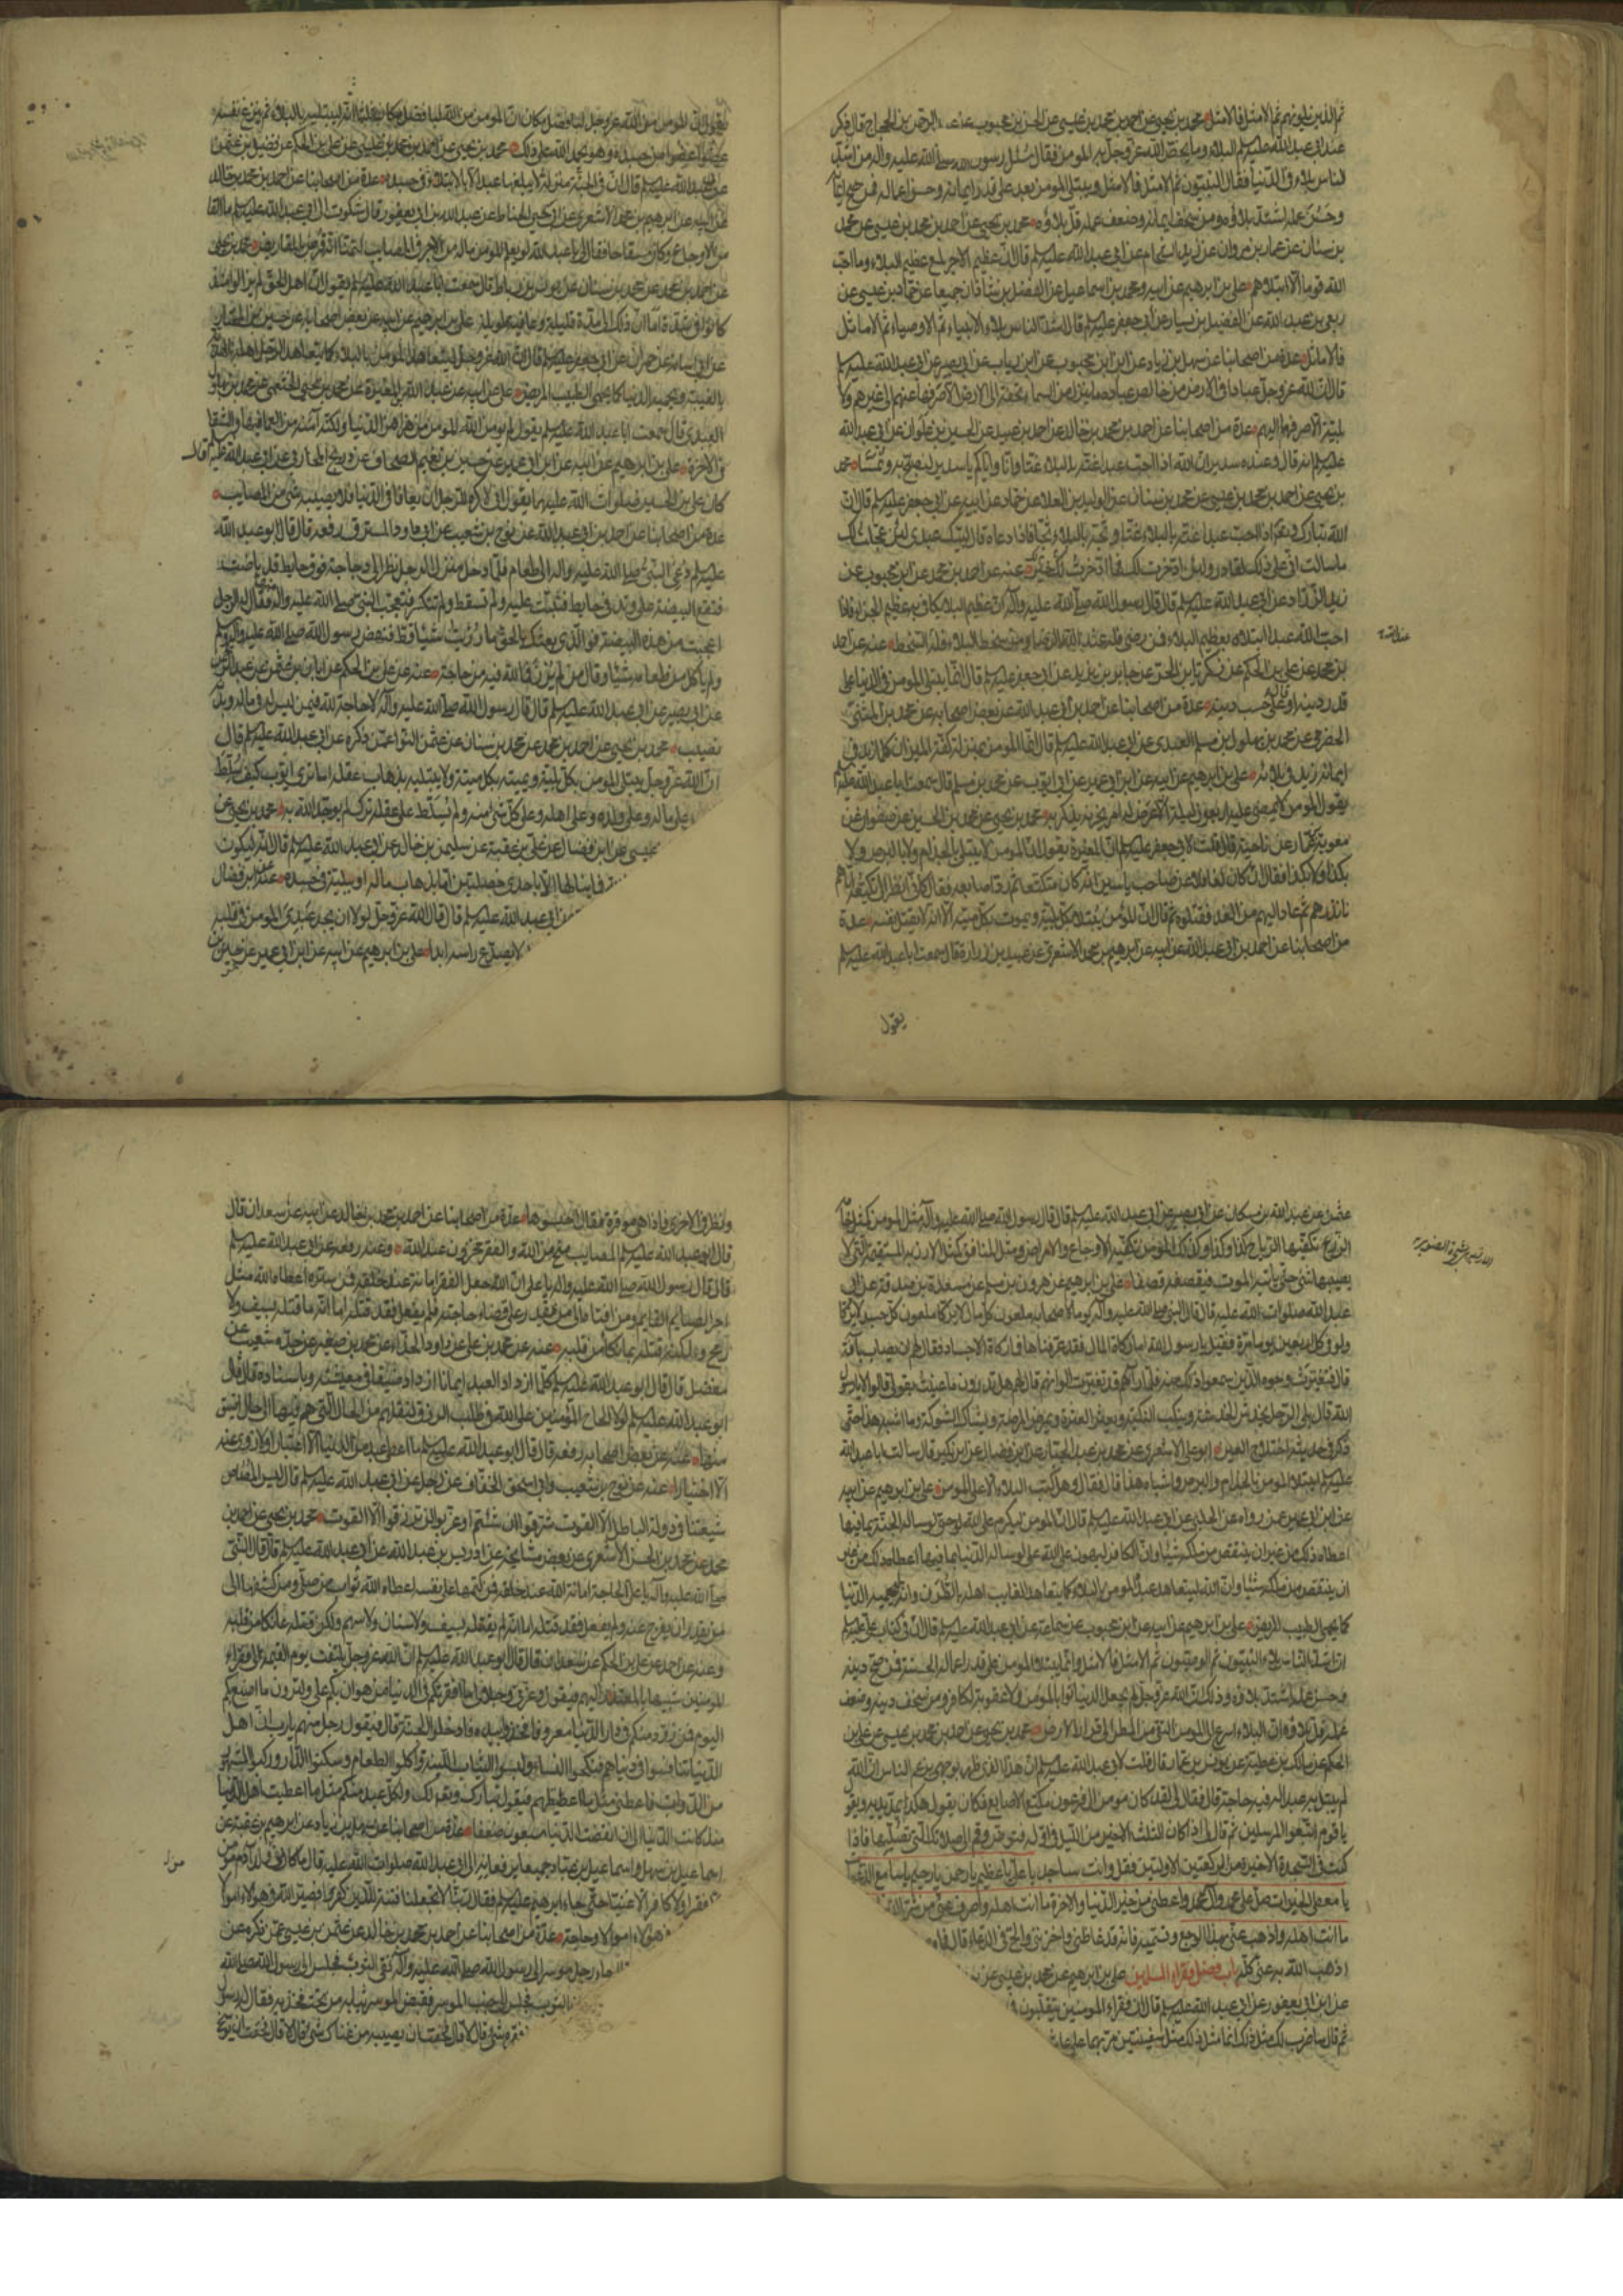 ثم الذين يلونهم ثم الامثل فالامثل محمد بن يحيى عن احمد بن محمد بن عيسى عن الحسن بن محبوب عن عبد الرحمن بن الحجاج قال ذكر
عند ابى عبد الله عليه السلم البلاء وما يخص الله عز وجل به المؤمن فقال سئل رسول الله صلى الله عليه واله من اشد
الناس بلاء فى الدنيا فقال النبيون ثم الامثل فالامثل ويبتلى المؤمن بعد على قدر ايمانه وحسن اعماله فمن صح ايمانه
وحسن عمله اشتد بلاؤه ومن سخف ايمانه وضعف عمله قل بلاؤه محمد بن يحيى عن احمد بن محمد بن عيسى عن محمد
بن سنان عن عمار بن مروان عن زيد الشحام عن ابى عبد الله عليه السلم قال ان عظيم الاجر لمع عظيم البلاء وما احب
الله قوما الا ابتلاهم على بن ابرهيم عن ابيه ومحمد بن اسماعيل عن الفضل بن شاذان جميعا عن حماد بن عيسى عن
ربعى بن عبد الله عن الفضيل بن يسار عن ابى جعفر عليه السلم قال اشد الناس بلاء الانبياء ثم الاوصياء ثم الاماثل
فالاماثل عدة من اصحابنا عن سهل بن زياد عن ابن محبوب عن ابن رياب عن ابى بصير عن ابى عبد الله عليه السلم
قال ان لله عز وجل عبادا فى الارض من خالص عباده ما ينزل من السماء تحفة الى الارض الا صرفها عنهم الى غيرهم ولا
بلية الا صرفها اليهم عدة من اصحابنا عن احمد بن محمد بن خالد عن احمد بن عبيد عن الحسين بن علوان عن ابى عبد الله
عليه السلم انه قال وعنده سدير ان الله اذا احب عبدا غته بالبلاء غتا وانا واياكم يا سدير لنصبح به ونمسى محمد
بن يحيى عن احمد بن محمد بن عيسى عن محمد بن سنان عن الوليد بن العلا عن حماد عن ابيه عن ابى جعفر عليه السلم قال ان
الله تبارك وتعالى اذا احب عبدا غته بالبلاء غتا وثجه بالبلاء ثجا فاذا دعاه قال لبيك عبدى لئن عجلت لك
ما سالت انى على ذلك لقادر ولئن ادخرت لك فما ادخرت لك خير عنه عن احمد بن محمد عن ابن محبوب عن
زيد الزراد عن ابى عبد الله عليه السلم قال قال رسول الله صلى الله عليه وآله ان عظيم البلاء يكافى به عظيم الجزاء فاذا
احب الله عبدا ابتلاه بعظيم البلاء فمن رضى فله عند الله الرضا ومن سخط البلاء فله السخط عنه عن احمد
بن محمد عن على بن الحكم عن زكريا بن الحر عن جابر بن يزيد عن ابى جعفر عليه السلم قال انما يبتلى المؤمن فى الدنيا على
قدر دينه او قال على حسب دينه عدة من اصحابنا عن احمد بن ابى عبد الله عن بعض اصحابه عن محمد بن المثنى
الحضرمى عن محمد بن بهلول بن مسلم العبدى عن ابى عبد الله عليه السلم قال انما المؤمن بمنزلة كفة الميزان كلما زيد فى
ايمانه زيد فى بلائه على بن ابرهيم عن ابيه عن ابن ابى عمير عن ابى ايوب عن محمد بن مسلم قال سمعت ابا عبد الله عليه السلم
يقول المؤمن لا يمضى عليه اربعون ليلة الا عرض له امر يحزنه يذكر به محمد بن يحيى عن محمد بن الحسين عن صفوان عن
معوية بن عمار عن ناجية قال قلت لابى جعفر عليه السلم ان المغيرة يقول ان المؤمن لا يبتلى بالجذام ولا بالبرص ولا
بكذا ولا بكذا فقال ان كان لغافلا عن صاحب ياسين انه كان مكنعا ثم رد اصابعه فقال كانى انظر الى تكنيعه اتاهم
فانذرهم ثم عاد اليهم من الغد فقتلوه ثم قال ان المؤمن يبتلى بكل بلية ويموت بكل ميتة الا انه لا يقتل نفسه عدة
من اصحابنا عن احمد بن ابى عبد الله عن ابيه عن ابرهيم بن محمد الاشعرى عن عبيد بن زرارة قال سمعت ابا عبد الله عليه السلم
يقول
يقول ان المؤمن من الله عز وجل لبافضل مكان ان المؤمن من الله لبافضل مكان ثلثا انه ليبتليه بالبلاء ثم ينزع نفسه
عضوا عضوا من جسده وهو يحمد الله على ذلك محمد بن يحيى عن احمد بن محمد بن عيسى عن على بن الحكم عن فضيل بن عثمن
عن ابى عبد الله عليه السلم قال ان فى الجنة منزلة لا يبلغها عبد الا بالابتلاء فى جسده عدة من اصحابنا عن احمد بن محمد بن خالد
عن ابيه عن ابرهيم بن محمد الاشعرى عن ابى يحيى الحناط عن عبد الله بن ابى يعفور قال شكوت الى ابى عبد الله عليه السلم ما القى
من الاوجاع وكان مسقاما فقال لى يا عبد الله لو يعلم المؤمن ماله من الاجر فى المصايب لتمنى انه قرض بالمقاريض محمد بن يحيى
عن احمد بن محمد عن محمد بن سنان عن يونس بن رباط قال سمعت ابا عبد الله عليه السلم يقول ان اهل الحق لم يزالوا منذ
كانوا فى شدة اما ان ذلك الى مدة قليلة وعافية طويلة على بن ابرهيم عن ابيه عن بعض اصحابه عن حسين بن المختار
عن ابى اسامة عن حمران عن ابى جعفر عليه السلم قال ان الله عز وجل ليتعاهد المؤمن بالبلاء كما يتعاهد الرجل اهله بالهدية
من الغيبة ويحميه الدنيا كما يحمى الطبيب المريض على عن ابيه عن عبد الله بن المغيرة عن محمد بن يحيى الخثعمى عن محمد بن بهلول
العبدى قال سمعت ابا عبد الله عليه السلم يقول لم يؤمن الله المؤمن من هزاهز الدنيا ولكنه آمنه من العمى فيها والشقا
فى الاخرة على بن ابرهيم عن ابيه عن ابن ابى عمير عن حسين بن نعيم الصحاف عن ذريح المحاربى عن ابى عبد الله عليه السلم قال
كان على بن الحسين صلوات الله عليهما يقول انى لاكره للرجل ان يعافا فى الدنيا فلا يصيبه شئ من المصايب
عدة من اصحابنا عن احمد بن ابى عبد الله عن نوح بن شعيب عن ابى داود المسترق رفعه قال قال ابو عبد الله
عليه السلم دعى النبى صلى الله عليه واله الى طعام فلما دخل منزل الرجل نظر الى دجاجة فوق حايط قد باضت
فتقع البيضة على وتد فى حايط فثبتت عليه ولم تسقط ولم تنكسر فتعجب النبى صلى الله عليه واله فقال له الرجل
اعجبت من هذه البيضة فو الذى بعثك بالحق ما رزئت شيئا قط فنهض رسول الله صلى الله عليه واله ولم
ولم ياكل من طعامه شيئا وقال من لم يرزأ فما لله فيه من حاجة عنه عن على بن الحكم عن ابان بن عثمن عن عبد الرحمن
عن ابى بصير عن ابى عبد الله عليه السلم قال قال رسول الله صلى الله عليه وآله لا حاجة لله فيمن ليس له فى ماله وبدنه
نصيب محمد بن يحيى عن احمد بن محمد عن محمد بن سنان عن عثمن النوا عمن ذكره عن ابى عبد الله عليه السلم قال
ان الله عز وجل يبتلى المؤمن بكل بلية ويميته بكل ميتة ولا يبتليه بذهاب عقله اما ترى ايوب كيف سلط
على ماله وعلى ولده وعلى اهله وعلى كل شئ منه ولم يسلط على عقله ترك له ليوحد الله به محمد بن يحيى عن
عيسى عن ابن فضال عن على بن عقبة عن سليمن بن خالد عن ابى عبد الله عليه السلم قال انه ليكون
فما ينالها الا باحدى خصلتين اما بذهاب ماله او ببلية فى جسده عنه عن ابن فضال
عن ابى عبد الله عليه السلم قال قال الله عز وجل لولا ان يجد عبدى المؤمن فى قلبه
لا يصدع راسه ابدا على بن ابرهيم عن ابيه عن ابن ابى عمير عن حسين بن
عثمن عن عبد الله بن مسكان عن ابى بصير عن ابى عبد الله عليه السلم قال قال رسول الله صلى الله عليه وآله مثل المؤمن كمثل خامة
الزرع تكفئها الرياح كذا وكذا وكذلك المؤمن تكفئه الاوجاع والامراض ومثل المنافق كمثل الارزبة المستقيمة التى لا
يصيبها شئ حتى ياتيه الموت فيقصفه قصفا على بن ابرهيم عن هرون بن مسلم عن مسعدة بن صدقة عن ابى
عبد الله صلوات الله عليه قال قال النبى صلى الله عليه وآله يوما لاصحابه ملعون كل مال لا يزكا ملعون كل جسد لا يزكا
ولو فى كل اربعين يوما مرة فقيل يا رسول الله اما زكاة المال فقد عرفناها فما زكاة الاجساد فقال لهم ان يصاب بآفة
قال فتغيرت وجوه الذين سمعوا ذلك منه فلما رآهم قد تغيرت الوانهم قال لهم هل تدرون ما عنيت بقولى قالوا لا يا رسول
الله قال بلى الرجل يخدش الخدشة وينكب النكبة ويعثر العثرة ويمرض المرضة ويشاك الشوكة وما اشبه هذا حتى
ذكر فى حديثه اختلاج العين ابو على الاشعرى عن محمد بن عبد الجبار عن ابن فضال عن ابن بكير قال سالت ابا عبد الله
عليه السلم ايبتلى المؤمن بالجذام والبرص واشباه هذا قال فقال وهل كتب البلاء الا على المؤمن على بن ابرهيم عن ابيه
عن ابن ابى عمير عمن رواه عن الحلبى عن ابى عبد الله عليه السلم قال ان المؤمن ليكرم على الله لو حتى لو ساله الجنة بما فيها
اعطاه ذلك من غير ان ينتقص من ملكه شيئا وان الكافر ليهون على الله حتى لو ساله الدنيا بما فيها اعطاه ذلك من غير
ان ينتقص من ملكه شيئا وان الله ليتعاهد عبده المؤمن بالبلاء كما يتعاهد الغايب اهله بالطرف وانه ليحميه الدنيا
كما يحمى الطبيب المريض على بن ابرهيم عن ابيه عن ابن محبوب عن سماعة عن ابى عبد الله عليه السلم قال ان فى كتاب على عليه السلم
ان اشد الناس بلاء النبيون ثم الوصيون ثم الامثل فالامثل وانما يبتلى المؤمن على قدر اعماله الحسنة فمن صح دينه
وحسن عمله اشتد بلاؤه وذلك ان الله عز وجل لم يجعل الدنيا ثوابا لمؤمن ولا عقوبة لكافر ومن سخف دينه وضعف
عمله قل بلاؤه ان البلاء اسرع الى المؤمن التقى من المطر الى قرار الارض محمد بن يحيى عن احمد بن محمد بن عيسى عن على بن
الحكم عن مالك بن عطية عن يونس بن عمار قال قلت لابى عبد الله عليه السلم ان هذا الذى ظهر بوجهى يزعم الناس ان الله
لم يبتل به عبدا له فيه حاجة قال فقال لى لقد كان مؤمن آل فرعون مكنع الاصابع فكان يقول هكذا ويمد يديه ويقول
يا قوم اتبعوا المرسلين ثم قال لى اذا كان الثلث الاخير من الليل فى اوله فتوضأ وقم الى صلاتك التى تصليها فاذا
كنت فى السجدة الاخيرة من الركعتين الاولتين فقل وانت ساجد يا على يا عظيم يا رحمن يا رحيم يا سامع الدعوات
يا معطى الخيرات صل على محمد وآل محمد واعطنى من خير الدنيا والاخرة ما انت اهله واصرف عنى من شر الدنيا
ما انت اهله واذهب عنى بهذا الوجع وتسميه فانه قد غاظنى واحزننى والح فى الدعاء قال فما
اذهب الله به عنى كله باب فضل فقراء المسلمين على بن ابرهيم عن محمد بن عيسى عن
عن ابن ابى يعفور عن ابى عبد الله عليه السلم قال ان فقراء المؤمنين يتقلبون
ثم قال ساضرب لك مثل ذلك انما مثل ذلك مثل سفينتين مر بهما على عاشر
ونظر فى الاخرى فاذا هى موقرة فقال احبسوها عدة من اصحابنا عن احمد بن محمد بن خالد عن ابيه عن سعدان قال
قال ابو عبد الله عليه السلم المصايب منح من الله والفقر مخزون عند الله وعنه رفعه عن ابى عبد الله عليه السلم
قال قال رسول الله صلى الله عليه واله يا على ان الله جعل الفقر امانة عند خلقه فمن ستره اعطاه الله مثل
اجر الصايم القايم ومن افشاه الى من يقدر على قضاء حاجته فلم يفعل فقد قتله اما انه ما قتله بسيف ولا
رمح ولكنه قتله بما نكا من قلبه عنه عن محمد بن على عن داود الحذاء عن محمد بن صغير عن جده شعيب عن
مفضل قال قال ابو عبد الله عليه السلم كلما ازداد العبد ايمانا ازداد ضيقا فى معيشته وباسناده قال قال
ابو عبد الله عليه السلم لولا الحاح المؤمنين على الله فى طلب الرزق لنقلهم من الحال التى هم فيها الى حال اضيق
منها عنه عن بعض اصحابه رفعه قال قال ابو عبد الله عليه السلم ما اعطى عبد من الدنيا الا اعتبارا وما زوى عنه
الا اختبارا عنه عن نوح بن شعيب وابى اسحق الخفاف عن رجل عن ابى عبد الله عليه السلم قال ليس لمصاص
شيعتنا فى دولة الباطل الا القوت شرقوا ان شئتم او غربوا لن ترزقوا الا القوت محمد بن يحيى عن احمد بن
محمد عن محمد بن الحسن الاشعرى عن بعض مشايخه عن ادريس بن عبد الله عن ابى عبد الله عليه السلم قال قال النبى
صلى الله عليه وآله يا على الحاجة امانة الله عند خلقه فمن كتمها على نفسه اعطاه الله ثواب من صلى ومن كشفها الى
من يقدر ان يفرج عنه ولم يفعل فقد قتله اما انه لم يقتله بسيف ولا سنان ولا سهم ولكن قتله بما نكا من قلبه
وعنه عن احمد عن على بن الحكم عن سعدان قال قال ابو عبد الله عليه السلم ان الله عز وجل يلتفت يوم القيمة الى فقراء
المؤمنين شبيها بالمعتذر اليهم فيقول وعزتى وجلالى ما افقرتكم فى الدنيا من هوان بكم على ولترون ما اصنع بكم
اليوم فمن زود منكم فى دار الدنيا معروفا فخذوا بيده فادخلوه الجنة قال فيقول رجل منهم يا رب ان اهل
الدنيا تنافسوا فى دنياهم فنكحوا النساء ولبسوا الثياب اللينة واكلوا الطعام وسكنوا الدور وركبوا المشهور
من الدواب فاعطنى مثل ما اعطيتهم فيقول تبارك وتعالى لك ولكل عبد منكم مثل ما اعطيت اهل الدنيا
منذ كانت الدنيا الى ان انقضت الدنيا سبعون ضعفا عدة من اصحابنا عن سهل بن زياد عن ابرهيم بن عقبة عن
اسماعيل بن سهل واسماعيل بن عباد جميعا يرفعانه الى ابى عبد الله صلوات الله عليه قال ما كان من ولد آدم مؤمن
الا فقيرا ولا كافر الا غنيا حتى جاء ابرهيم عليه السلم فقال ربنا لا تجعلنا فتنة للذين كفروا فصير الله فى هؤلاء اموالا
هؤلاء اموالا وحاجة عدة من اصحابنا عن احمد بن محمد بن خالد عن عثمن بن عيسى عمن ذكره عن
جاء رجل موسر الى رسول الله صلى الله عليه وآله نقى الثوب فجلس الى رسول الله صلى الله
الثوب فجلس الى جنب الموسر فقبض الموسر ثيابه من تحت فخذيه فقال له رسول
فقره شئ قال لا قال فخفت ان يصيبه من غناك شئ قال لا قال فخفت ان يوسخ